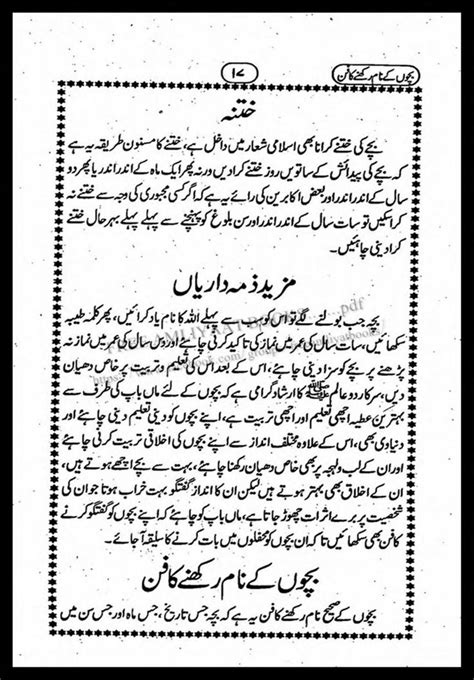 بچوں کے نام رکھنے کا فن
۱۷
ختنہ
بچے کی ختنے کرانا بھی اسلامی شعار میں داخل ہے، ختنے کا مسنون طریقہ یہ ہے
کہ بچے کی پیدائش کے ساتویں روز ختنے کرا دیں ورنہ پھر ایک ماہ کے اندر اندر یا پھر دو
سال کے اندر اندر اور بعض اکابرین کی رائے یہ ہے کہ اگر کسی مجبوری کی وجہ سے ختنے نہ
کرا سکیں تو سات سال کے اندر اندر اور سن بلوغ کو پہنچنے سے پہلے پہلے بہر حال ختنے
کرا دینی چاہئیں۔
مزید ذمہ داریاں
بچہ جب بولنے لگے تو اس کو سب سے پہلے اللہ کا نام یاد کرائیں، پھر کلمہ طیبہ
سکھائیں، سات سال کی عمر میں نماز کی تاکید کرنی چاہئے اور دس سال کی عمر میں نماز نہ
پڑھنے پر بچے کو سزا دینی چاہئے، اس کے بعد اس کی تعلیم و تربیت پر خاص دھیان
دیں، سرکار دو عالم ﷺ کا ارشاد گرامی ہے کہ بچوں کے لئے ماں باپ کی طرف سے
بہترین عطیہ اچھی تعلیم اور اچھی تربیت ہے، اپنے بچوں کو دینی تعلیم دینی چاہئے اور
دنیاوی بھی، اس کے علاوہ مختلف انداز سے اپنے بچوں کی اخلاقی تربیت کرنی چاہئے
اور ان کے لب ولہجہ پر بھی خاص دھیان رکھنا چاہئے، بہت سے بچے اچھے ہوتے ہیں،
ان کے اخلاق بھی بہتر ہوتے ہیں لیکن ان کا انداز گفتگو بہت خراب ہوتا جو ان کی
شخصیت پر برے اثرات چھوڑ جاتا ہے، ماں باپ کو چاہئے کہ اپنے بچوں کو گفتگو کرنے
کا فن بھی سکھائیں تا کہ ان بچوں کو محفلوں میں بات کرنے کا سلیقہ آجائے۔
بچوں کے نام رکھنے کا فن
بچوں کے صحیح نام رکھنے کا فن یہ ہے کہ بچہ جس تاریخ، جس ماہ اور جس سن میں